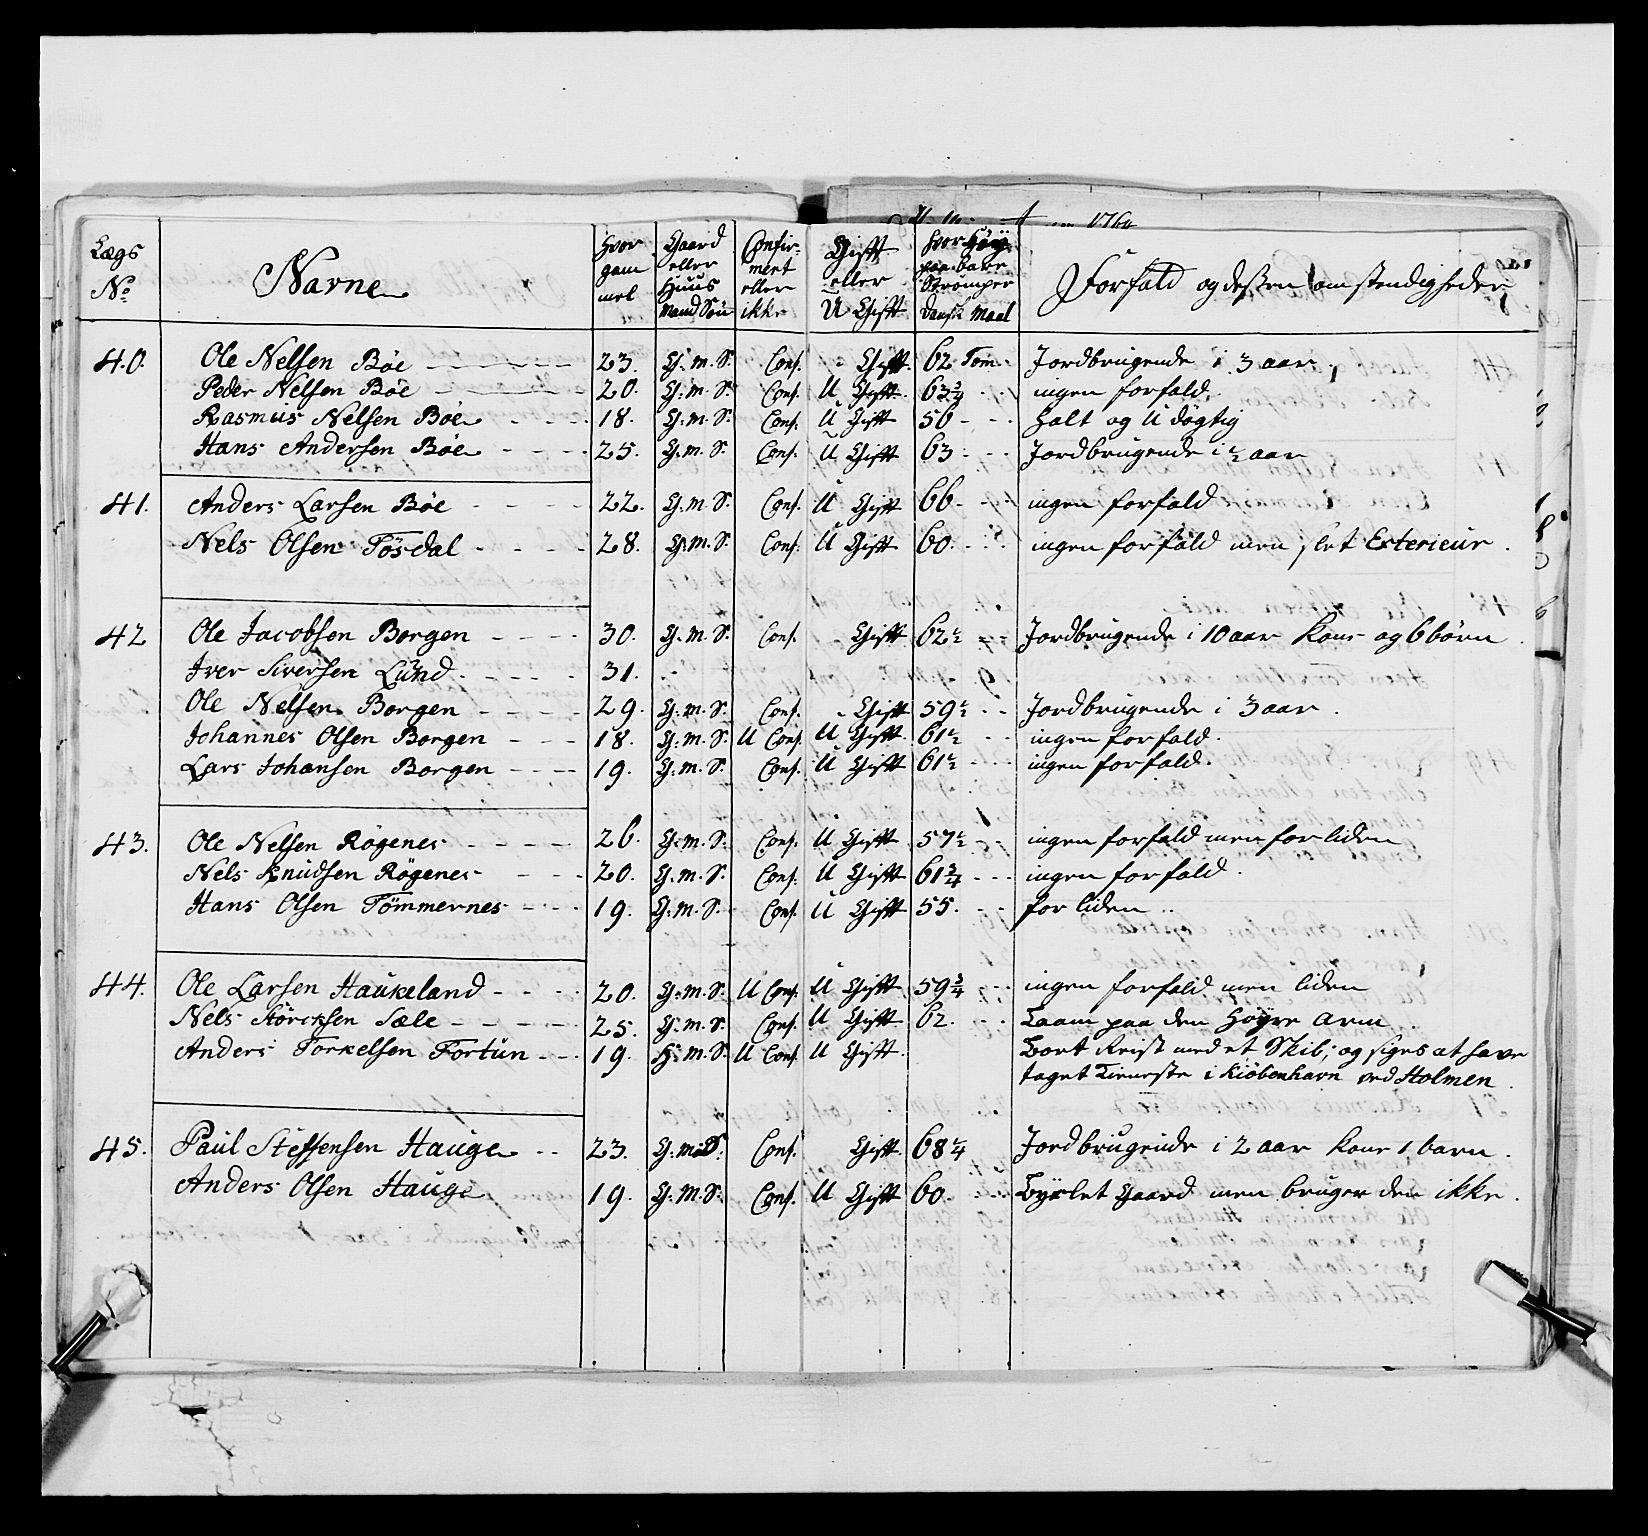 Lægs No | Navne | Hvor gam mel | Gaard eller Huus Mand Søn | Confir- mert eller ikke | Gift eller U Gift | hvor Høy paa bare Strömper Dansk Maal | Forfald og deßen omstendigheder
40. | Ole Nelsen Böe | 23. | G. m. S. | Conf. | Gift | 62 Tom. | Jordbrugende i 3 aar
Peder Nelsen Böe | 20. | G. m. S. | Conf. | U Gift | 63 3/4 | ingen forfald.
Rasmus Nelsen Böe | 18. | G. m. S. | Conf. | U Gift | 56 | Halt og Udögtig
Hans Andersen Böe | 25. | G. m. S. | Conf. | U Gift | 63 | Jordbrugende i 1/2 aar
41. | Anders Larsen Böe | 22. | G. m. S. | Conf. | U Gift | 66. | ingen forfald
Nels Olsen Tösdal | 28. | G. m. S. | Conf. | U Gift | 60. | ingen forfald men slet Exterieur.
42 | Ole Jacobsen Borgen | 30. | G. m. S. | Conf. | Gift | 62 1/2 | Jordbrugende i 10 aar Kone og 6 börn.
Iver Siversen Lund | 31.
Ole Nelsen Borgen | 29. | G. m. S. | Conf. | Gift | 59 1/2 | Jordbrugende i 3 aar.
Johannes Olsen Borgen | 18. | G. m. S. | U Conf. | U Gift | 61 1/2 | ingen forfald.
Lars Johansen Borgen | 19. | G. m. S. | Conf. | U Gift | 61 1/2 | ingen forfald.
43. | Ole Nelsen Rögenes | 26. | G. m. S. | Conf. | U Gift | 57 1/2 | ingen forfald men for liden
Nels Knudsen Rögenes | 20. | G. m. S. | Conf. | U Gift | 61 3/4 | ingen forfald.
Hans Olsen Tömmernes | 19. | G. m. S. | Conf. | U Gift | 55. | for liden.
44. | Ole Larsen Haukeland | 20. | G. m. S. | U Conf. | U Gift | 59 3/4 | ingen forfald men liden
Nels Störcksen Sæle | 25. | G. m. S. | Conf. | U Gift | 62. | Laam paa den Höyre Arm.
Anders Torkelsen Fortun | 19. | H. m. S. | U Conf. | U Gift | Bort Reist med et Skib; og siges at have
taget Tieneste i Kiöbenhavn ved Holmen.
45. | Paul Steffensen Hauge | 23. | G. m. S. | Conf. | Gift | 68 1/4 | Jordbrugende i 2 aar Kone 1 barn.
Anders Olsen Hauge | 19. | G. M. S. | Conf. | U Gift | 60. | Byxlet Gaard men bruger den ikke.